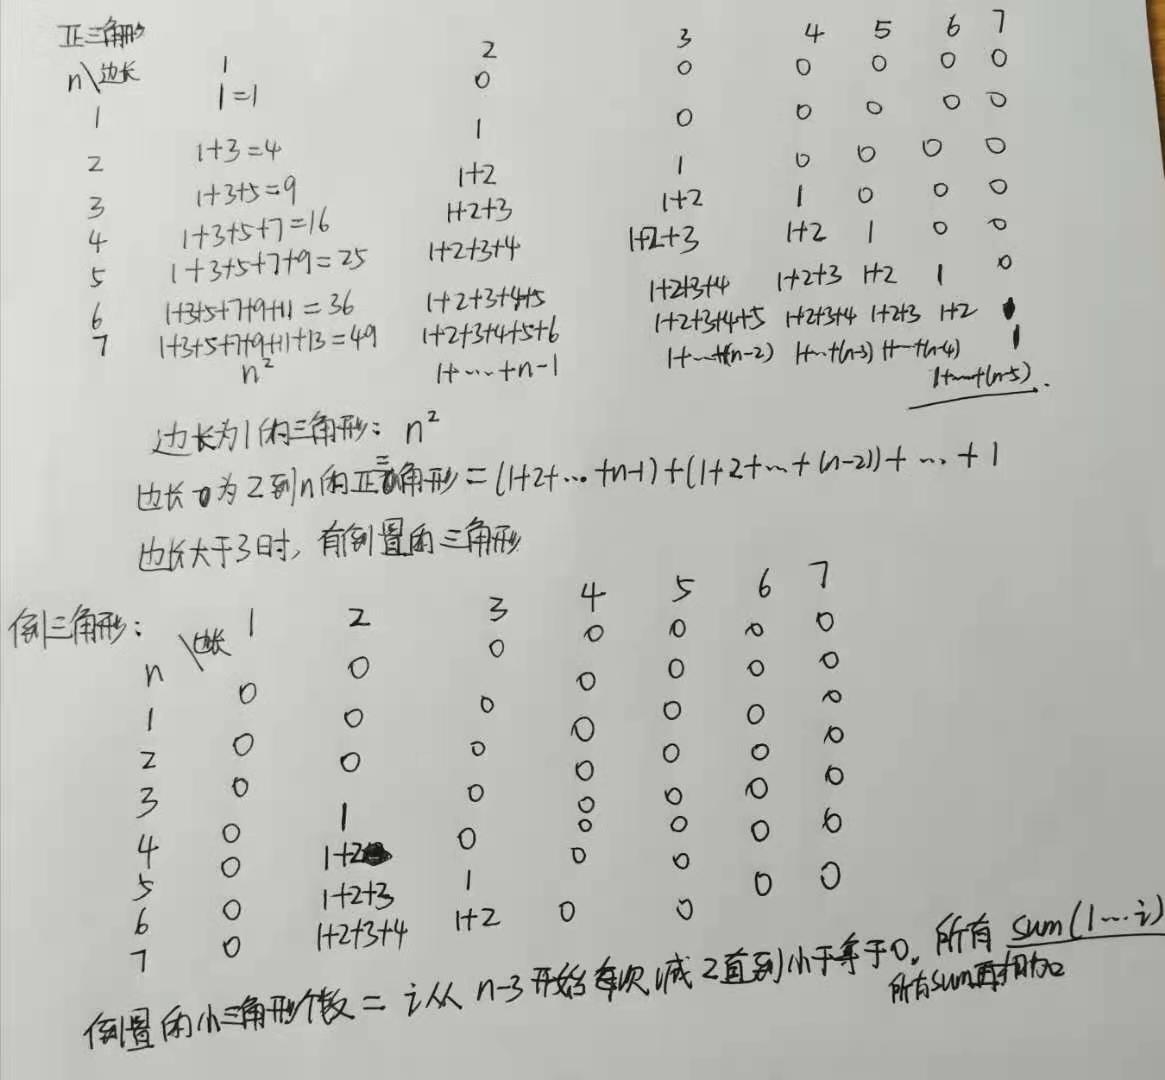 正三角形
n\边长 1 2 3 4 5 6 7
1 1=1 0 0 0 0 0 0
2 1+3=4 1 0 0 0 0 0
3 1+3+5=9 1+2 1 0 0 0 0
4 1+3+5+7=16 1+2+3 1+2 1 0 0 0
5 1+3+5+7+9=25 1+2+3+4 1+2+3 1+2 1 0 0
6 1+3+5+7+9+11=36 1+2+3+4+5 1+2+3+4 1+2+3 1+2 1 0
7 1+3+5+7+9+11+13=49 1+2+3+4+5+6 1+2+3+4+5 1+2+3+4 1+2+3 1+2 1
n² 1+…+n-1 1+…+(n-2) 1+…+(n-3) 1+…+(n-4) 1+…+(n-5).
边长为1的三角形: n²
边长为2到n的正三角形=(1+2+…+n-1)+(1+2+…+(n-2))+…+1
边长大于3时,有倒置的三角形
倒三角形:
n \边长 1 2 3 4 5 6 7
1 0 0 0 0 0 0 0
2 0 0 0 0 0 0 0
3 0 0 0 0 0 0 0
4 0 1 0 0 0 0 0
5 0 1+2 0 0 0 0 0
6 0 1+2+3 1 0 0 0 0
7 0 1+2+3+4 1+2 0 0 0 0
倒置的小三角形个数=i从n-3开始每次减2直到小于等于0。所有sum(1…i)
所有sum再相加